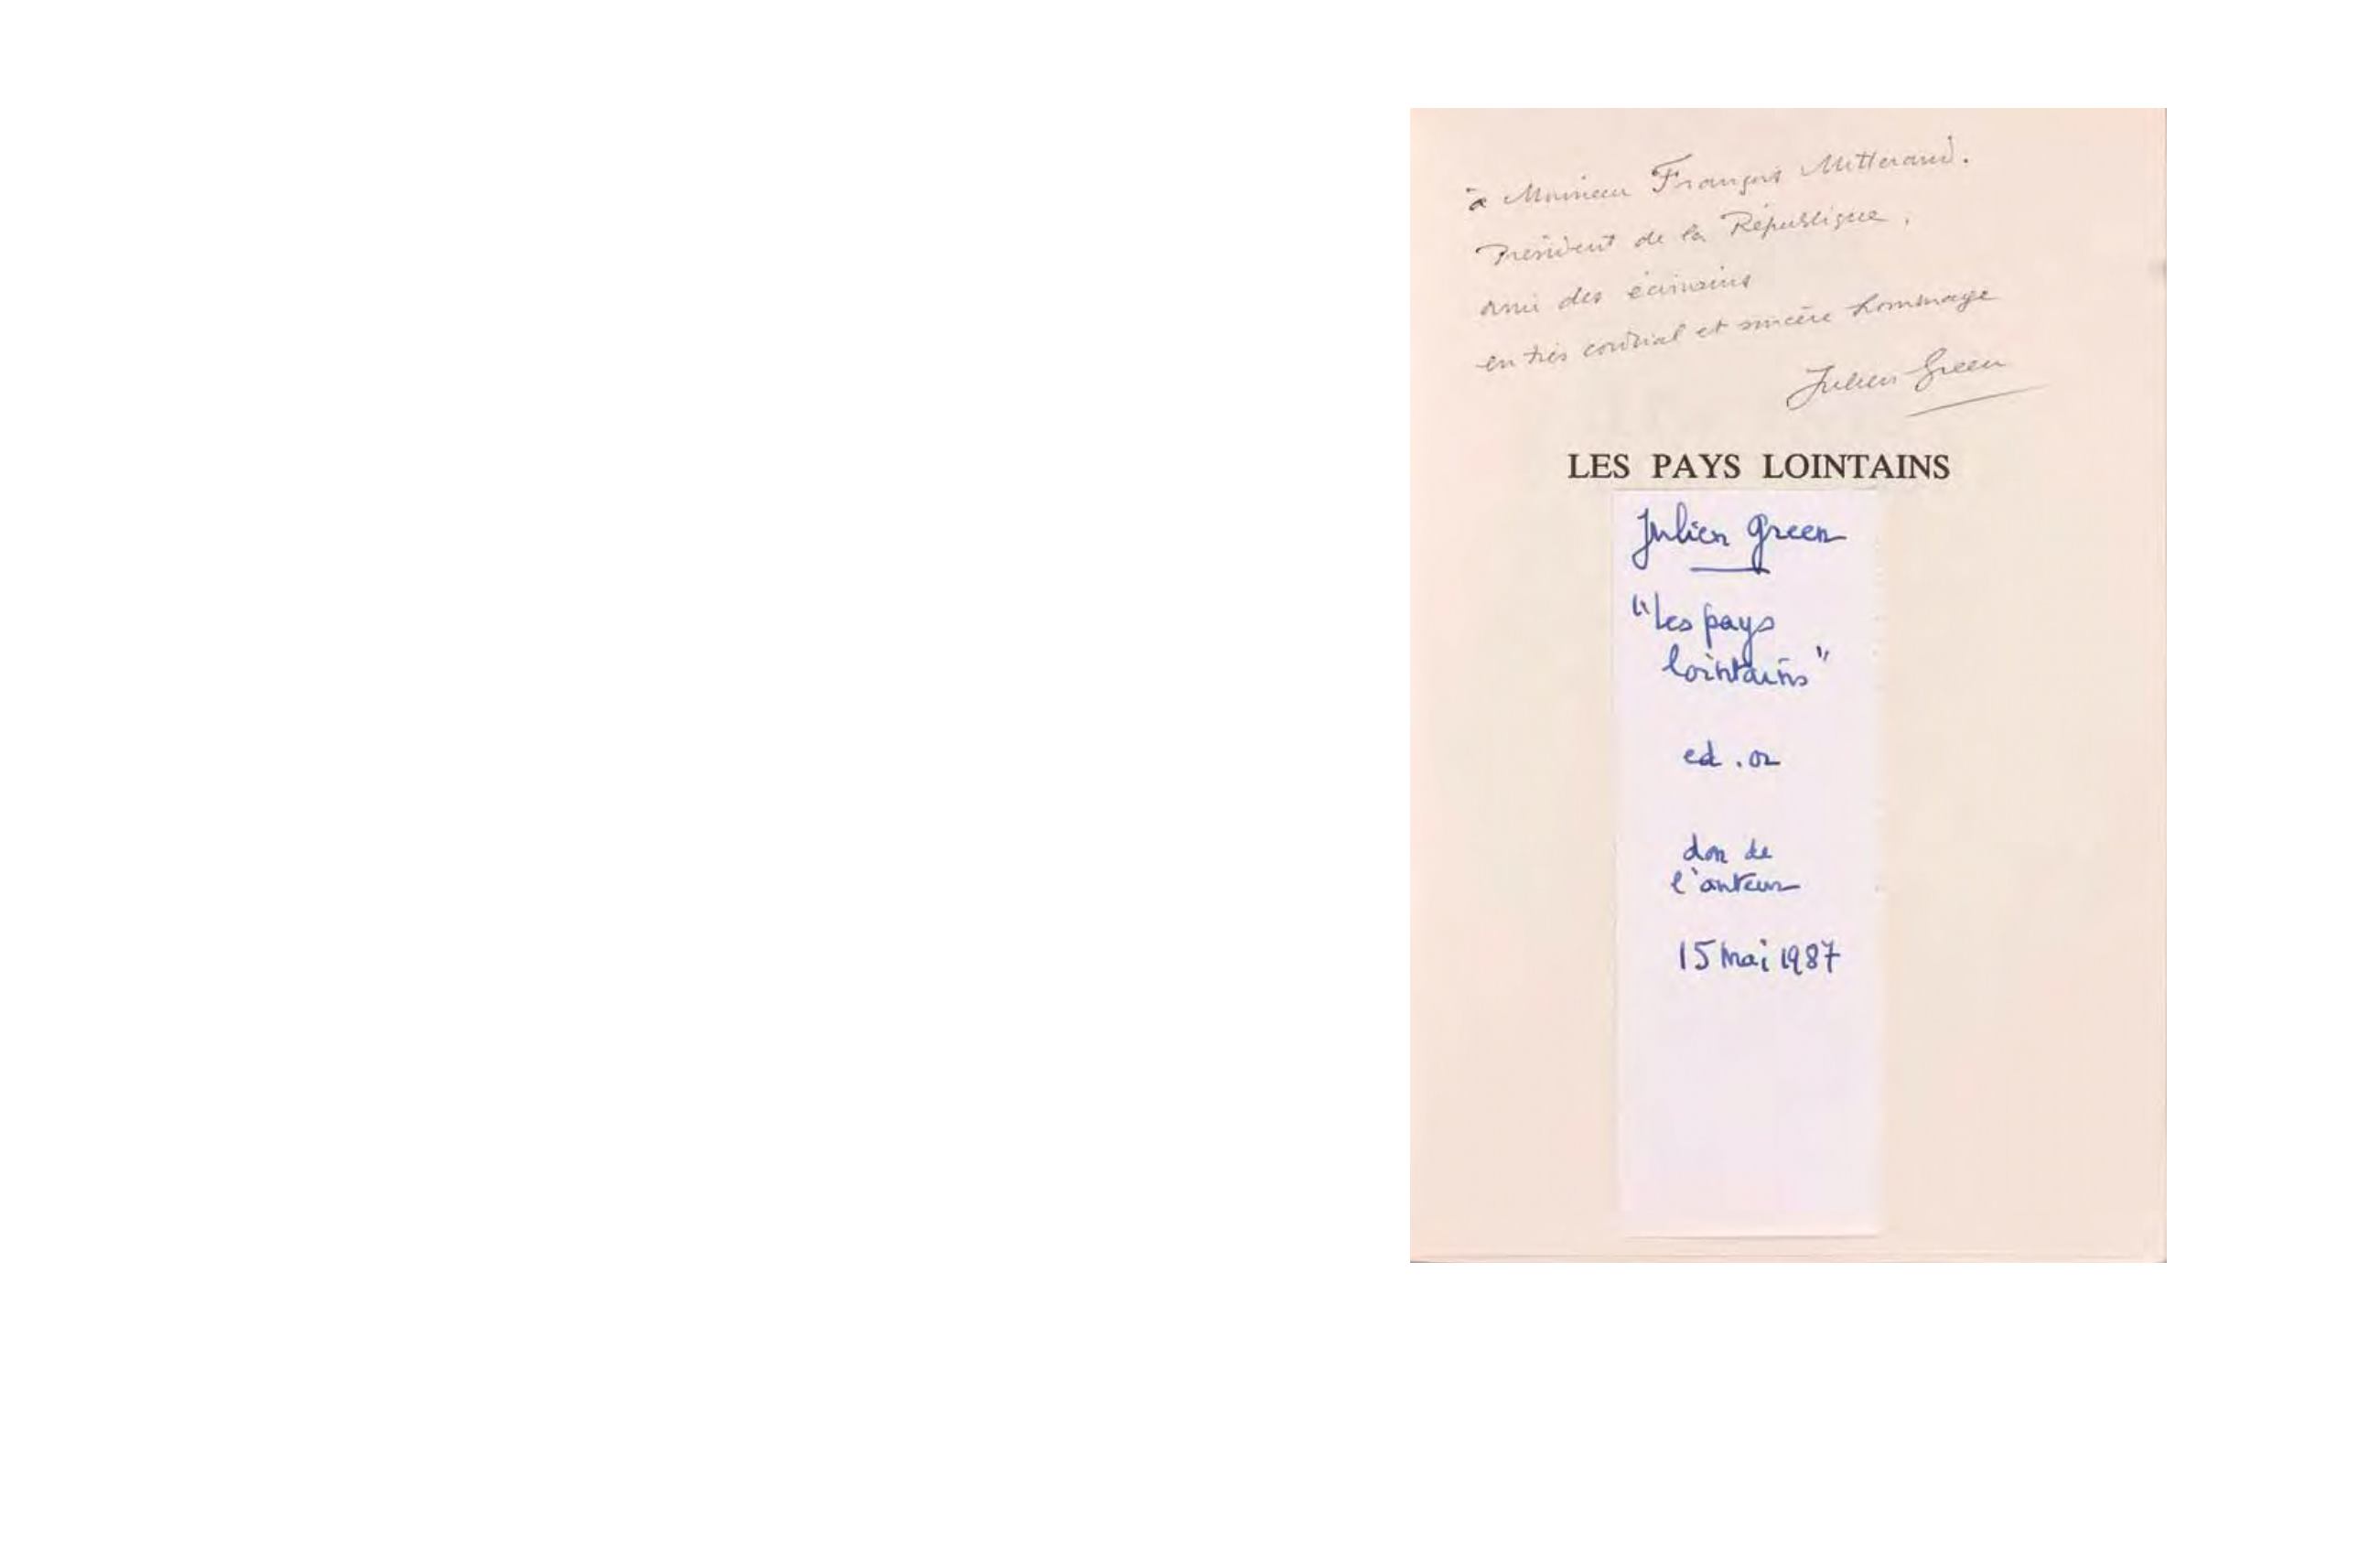 à Monsieur François Mitterand.
Président de la République,
ami des écrivains
en très cordial et sincère hommage
Julien Green
LES PAYS LOINTAINS
Julien Green
"les pays
lointains"
ed. or
don de
l'auteur
15 mai 1987